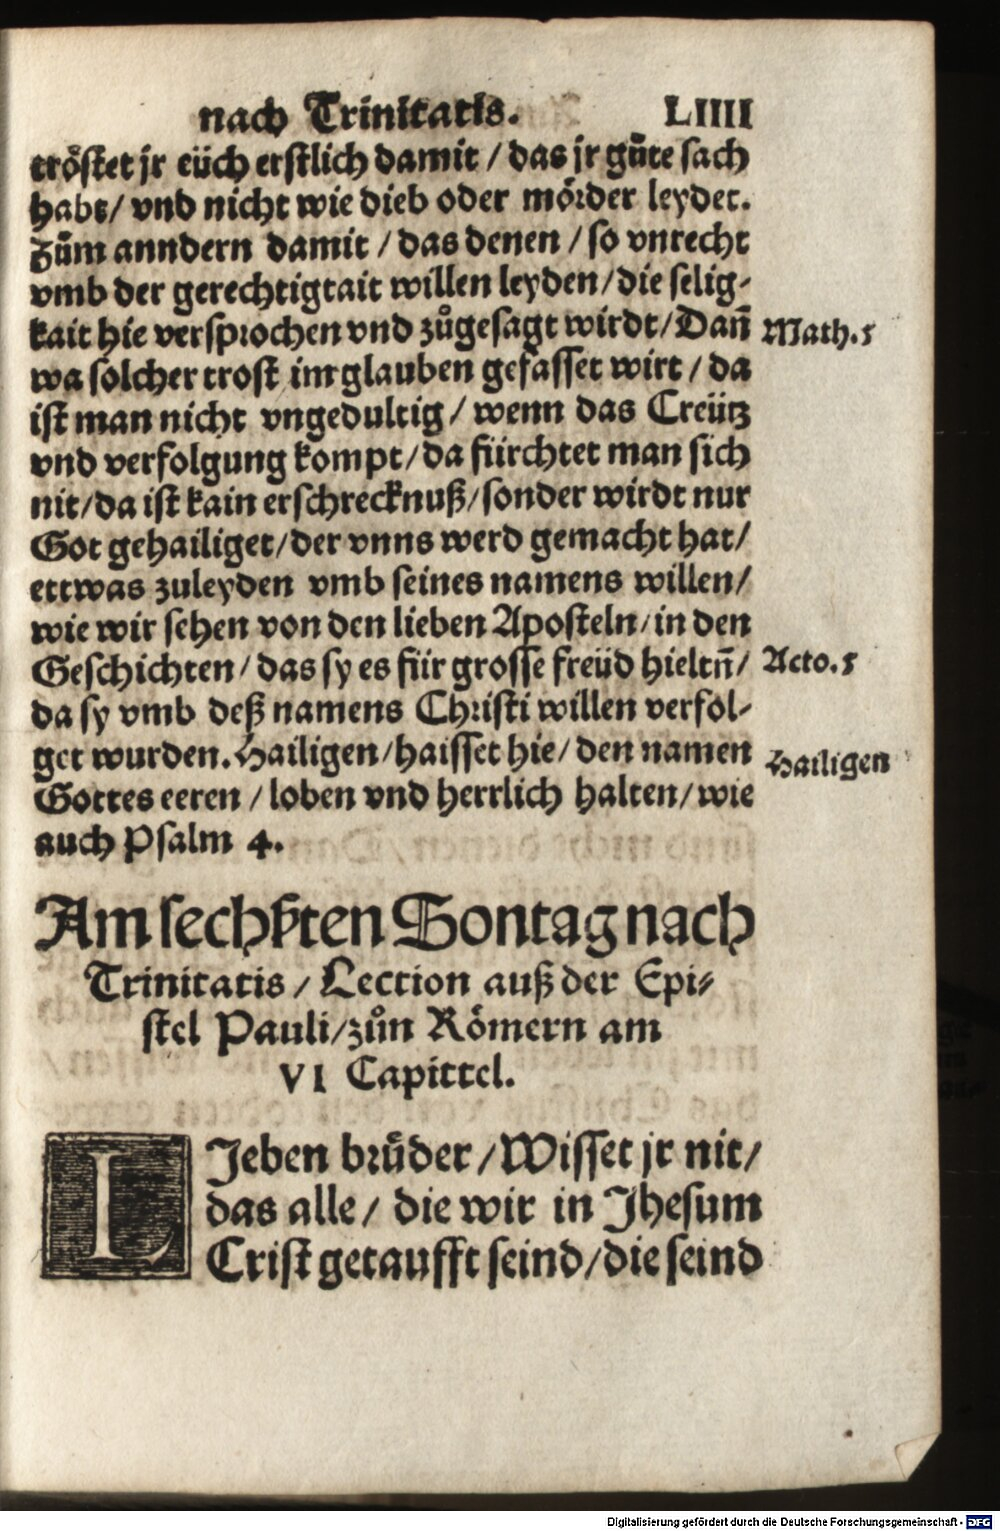 nach Trinitatis. LIIII
tröstet jr eüch erstlich damit / das jr gůte sach
habt / vnd nicht wie dieb oder mörder leydet.
Zům anndern damit / das denen / so vnrecht
vmb der gerechtigtait willen leyden / die selig-
kait hie versprochen vnd zůgesagt wirdt / Dañ Math. 5
wa solcher trost im glauben gefasset wirt / da
ist man nicht vngedultig / wenn das Creütz
vnd verfolgung kompt / da fürchtet man sich
nit / da ist kain erschrecknuß / sonder wirdt nur
Got gehailiget / der vnns werd gemacht hat /
ettwas zuleyden vmb seines namens willen /
wie wir sehen von den lieben Aposteln / in den
Geschichten / das sy es für grosse freüd hieltñ / Acto. 5
da sy vmb deß namens Christi willen verfol-
get wurden. Hailigen / haisset hie / den namen Hailigen
Gottes eeren / loben vnd herrlich halten / wie
auch Psalm 4.
Am sechßten Sontag nach
Trinitatis / Lection auß der Epi-
stel Pauli / zůn Römern am
VI Capittel.
LJeben brůder / Wisset jr nit /
das alle / die wir in Jhesum
Crist getaufft seind / die seind
Digitalisierung gefördert durch die Deutsche Forschungsgemeinschaft - DFG